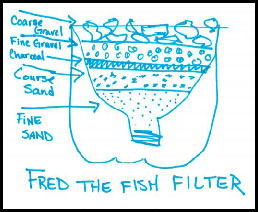 Coarse
Gravel
Fine Gravel
Charcoal
Course
Sand
FINE
SAND
FRED THE FISH FILTER